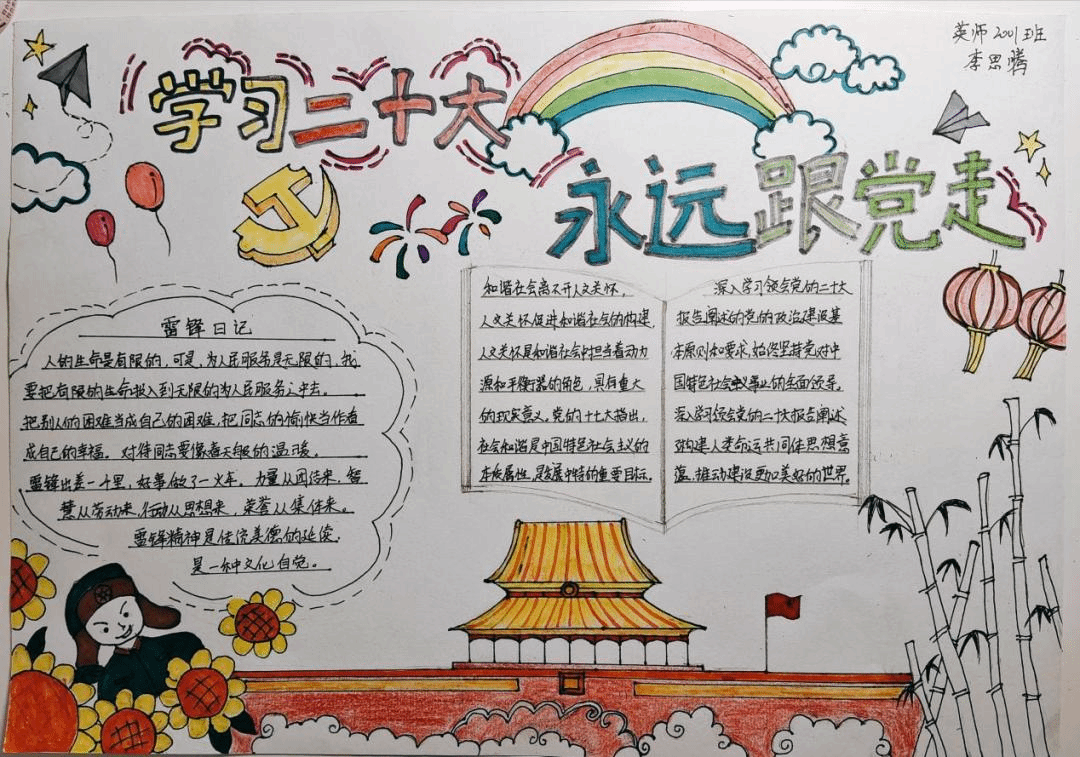 英师2001班
李思腾
学习二十大
永远跟党走
雷锋日记
人的生命是有限的，可是，为人民服务是无限的，我
要把有限的生命投入到无限的为人民服务之中去。
把别人的困难当成自己的困难，把同志的愉快当作看
成自己的幸福。对待同志要像春天般的温暖。
雷锋出差一千里，好事做了一火车。力量从团结来，智
慧从劳动来，行动从思想来，荣誉从集体来。
雷锋精神是传统美德的延续，
是一种文化自觉。
和谐社会离不开人文关怀，
人文关怀促进和谐社会的构建，
人文关怀是和谐社会中担当着动力
源和平衡器的角色，具有重大
的现实意义。党的十七大指出，
社会和谐是中国特色社会主义的
本质属性，是发展中特的重要目标。
深入学习领会党的二十大
报告阐述的党的政治建设基
本原则和要求，始终坚持党对中
国特色社会主义事业的全面领导。
深入学习领会党的二十大报告阐述
对构建人类命运共同体思想意
蕴，推动建设更加美好的世界。